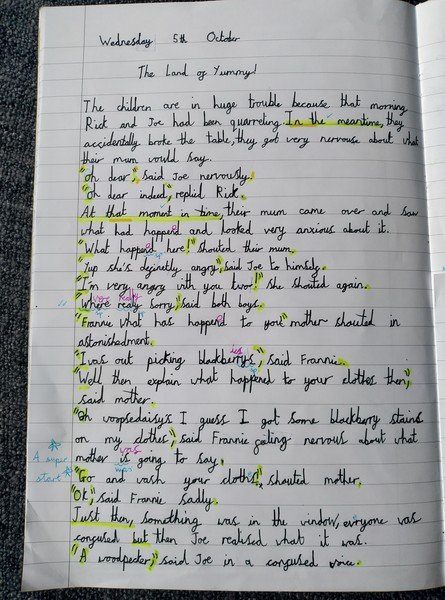 Wednesday 5th October
The Land of Yummy!
The children are in huge trouble because that morning
Rick and Joe had been quarreling. In the meantime, they
accidentally broke the table, they got very nervouse about what
their mum would say.
"Oh dear," said Joe nervously.
"Oh dear indeed," replied Rick.
At that moment in time, their mum came over and saw
what had happend and looked very anxious about it.
"What happend here!" shouted their mum.
"Yup she's definetly angry," said Joe to himself.
"I'm very angry with you two!" she shouted again.
"Where realy sorry," said both boys.
"Frannie what has happend to you" mother shouted in
astonishedment.
"I was out picking blackberrys," said Frannie.
"Well then explain what happened to your clothes then,"
said mother.
"Oh woopsedaisy's I guess I got some blackberry stains
on my clothes," said Frannie feeling nervous about what
was
mother is going to say.
A super
start
"Go and wash your clothes!" shouted mother.
"Ok," said Frannie sadly.
Just then, something was in the window, everyone was
confused but then Joe realised what it was.
"A woodpecker," said Joe in a confused voice.